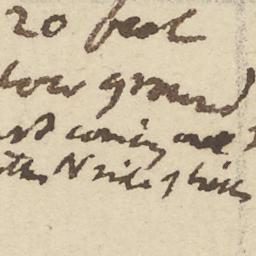 20 feet
low ground
coming out
the N side of hills